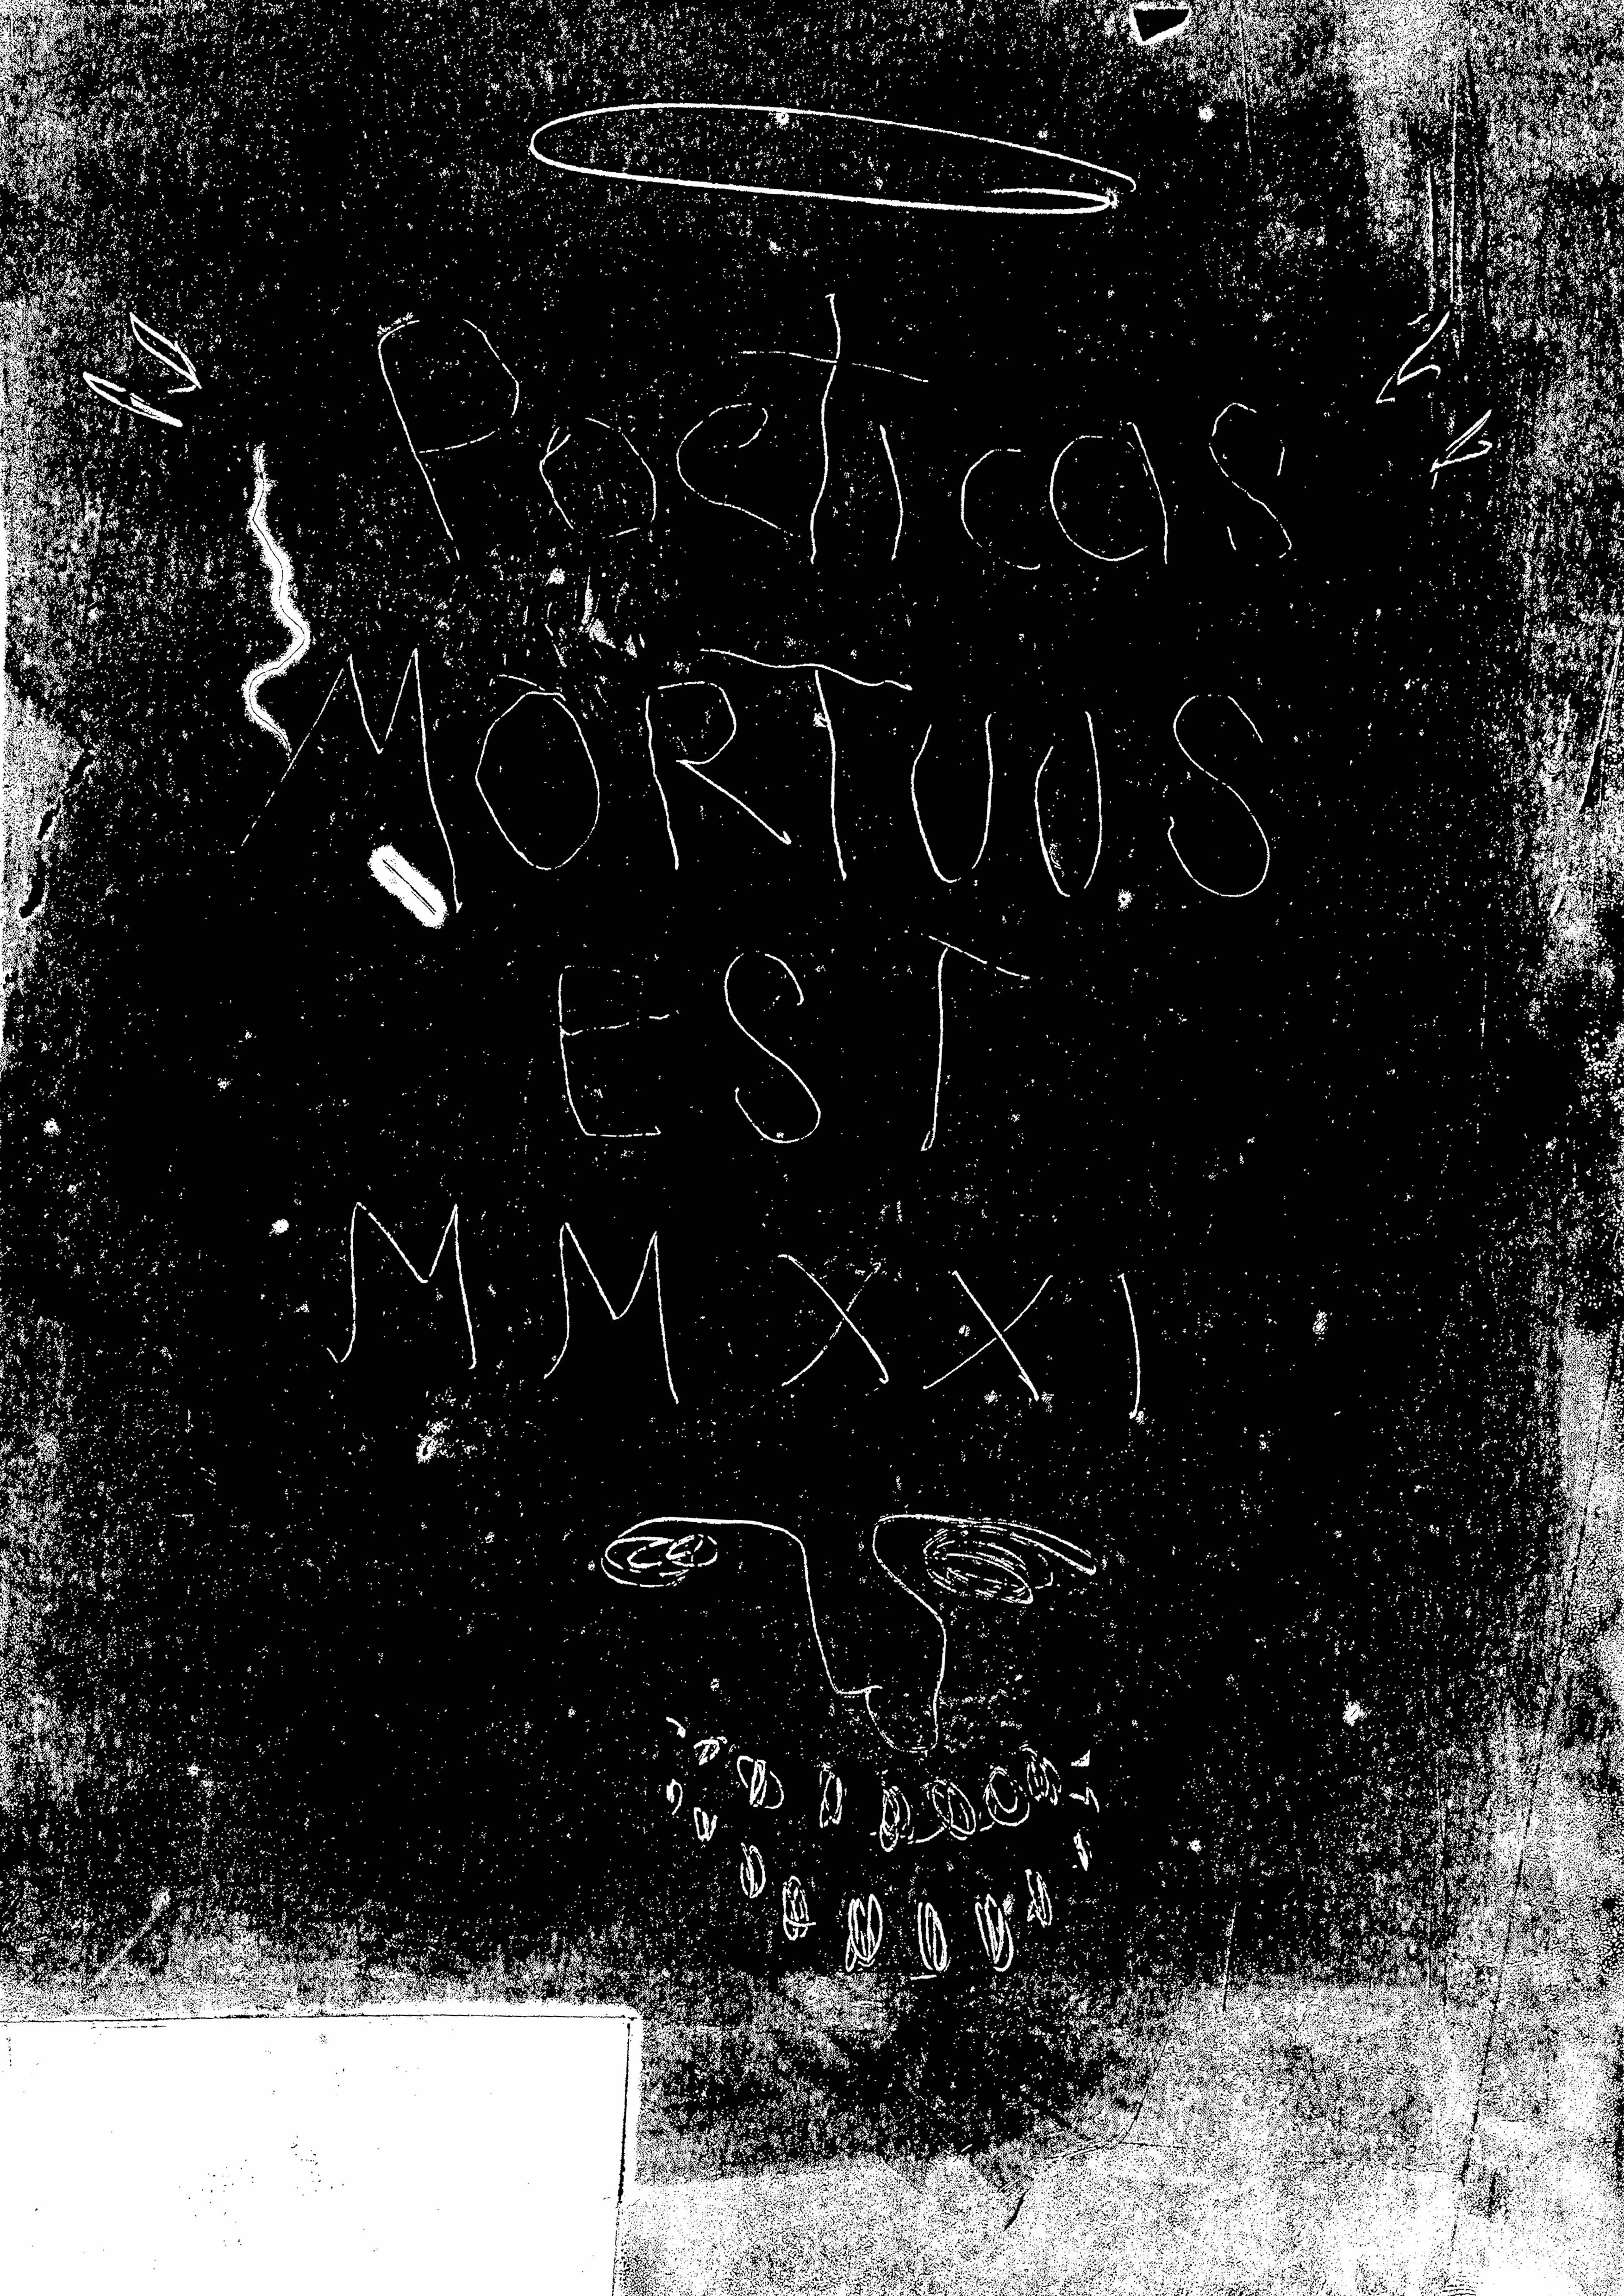 Poeticas
MORTUUS
EST
MMXXI